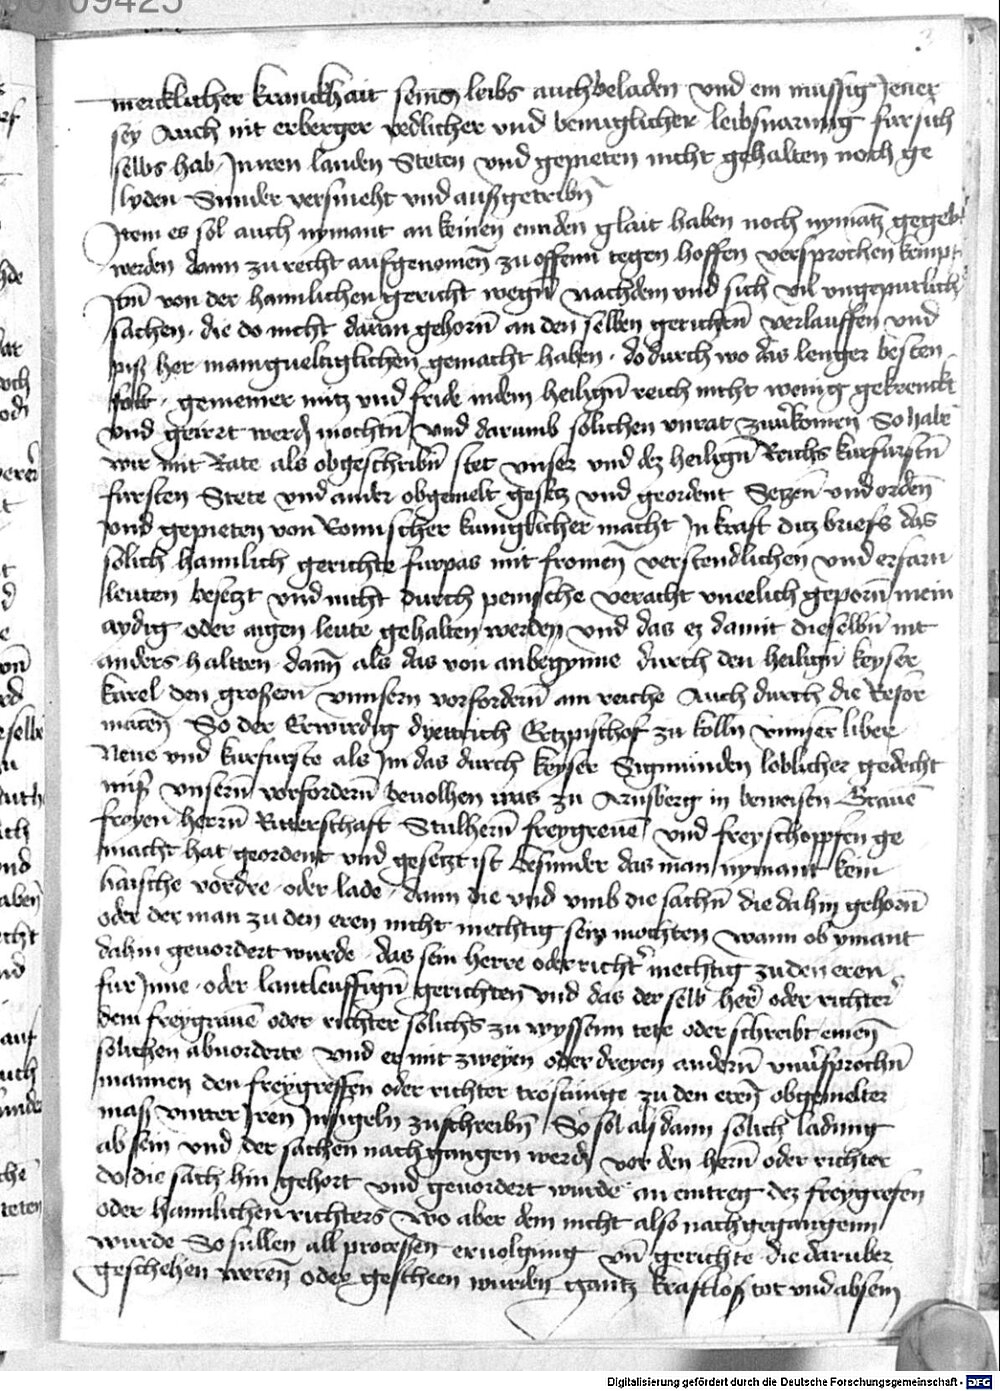 00109425
mercklicher kranckhait seins leibs auch beladen und ein mussig Jener
sey Auch nit erberger redlicher und benuglicher leibsnarung fur sich
selbs hab In iren landen Steten und gepieten nicht gehalten noch ge
lyden Sunder versmeht und aufzgetribn
Item es sol auch nymant an keinen ennden glait haben noch nymatz gegebn
werden dann zu recht aufgenomen zu offenn tegen hoffen versprochen
Item von der haimlichen gericht wegn Nachdem und sich vil ungepurlich
sachen die do nicht daran gehorn an den selben gerichten verlauffen und
pisz her manigueltiglichen gemacht haben do durch wo das lenger besten
solt gemeiner nutz und fride in dem heiligen reich nicht wenig gekrenckt
und geirrt werden mochtn und darumb solichen unrat zuuerkomen So habe
wir mit Rate als obgeschribn stet unser und dez heiligen Reichs kurfursten
fursten Stete und ander obgemelt gesetz und geordent Setzen und orden
und gepieten von Romischer kuniglicher macht In kraft ditz briefs das
solich haimlich gerichte furpas mit fromen verstendlichen und erfarn
leuten besetzt und nicht durch pennische veracht uneelich geporn mein
aydig oder aigen leute gehalten werden und das ez damit dieselbn nit
anders haltten dann als das von anbegynne durch den heilign keyser
karel den grossen unnsern vorfordern am reiche Auch durch die Refor
macen So der Erwirdig dyettrich Ertzpischof zu kolln unnser liber
Neue und kurfurste als im das durch keyser Sigmunden loblicher gedecht
nisz unsern vorfordern beuolhen was zu Arnsberg in beweisen Grauen
freyen herrn Ritterschaft Stulhern freygreuen und freyschopffen ge
macht hat geordent und gesetzt ist besunder das man nymant kein
haische vordre oder lade dann die und umb die sachn die dahin gehorn
oder der man zu den eren nicht mechtig sein mochten wann ob ymant
dahin geuordert wurde das sein herre oder richter mechtig zu den eren
fur Inne oder lantleuffign gerichten und das der selb her oder richter
dem freygrauen oder richter solichs zu wyssenn tete oder schreibt einen
solichen abuorderte und er mit zweyen oder dreyen andern unuersprochn
mannen den freygreffen oder richter trostunge zu den eren obgemelter
mass unter Iren Insigeln zuschreibn So sol alsdann solich ladung
ab sein und der sachen nach gangen werden vor den hern oder richter
do die sach hin gehort und geuordert wurde an eintreg dez freygrefen
oder haimlichen richters wo aber dem nicht also nachgegangenn
wurde So sullen all processen eruolgung und gerichte die daruber
geschehen weren oder gescheen wurden gantz kraftlosz tot und absein
Digitalisierung gefördert durch die Deutsche Forschungsgemeinschaft - DFG